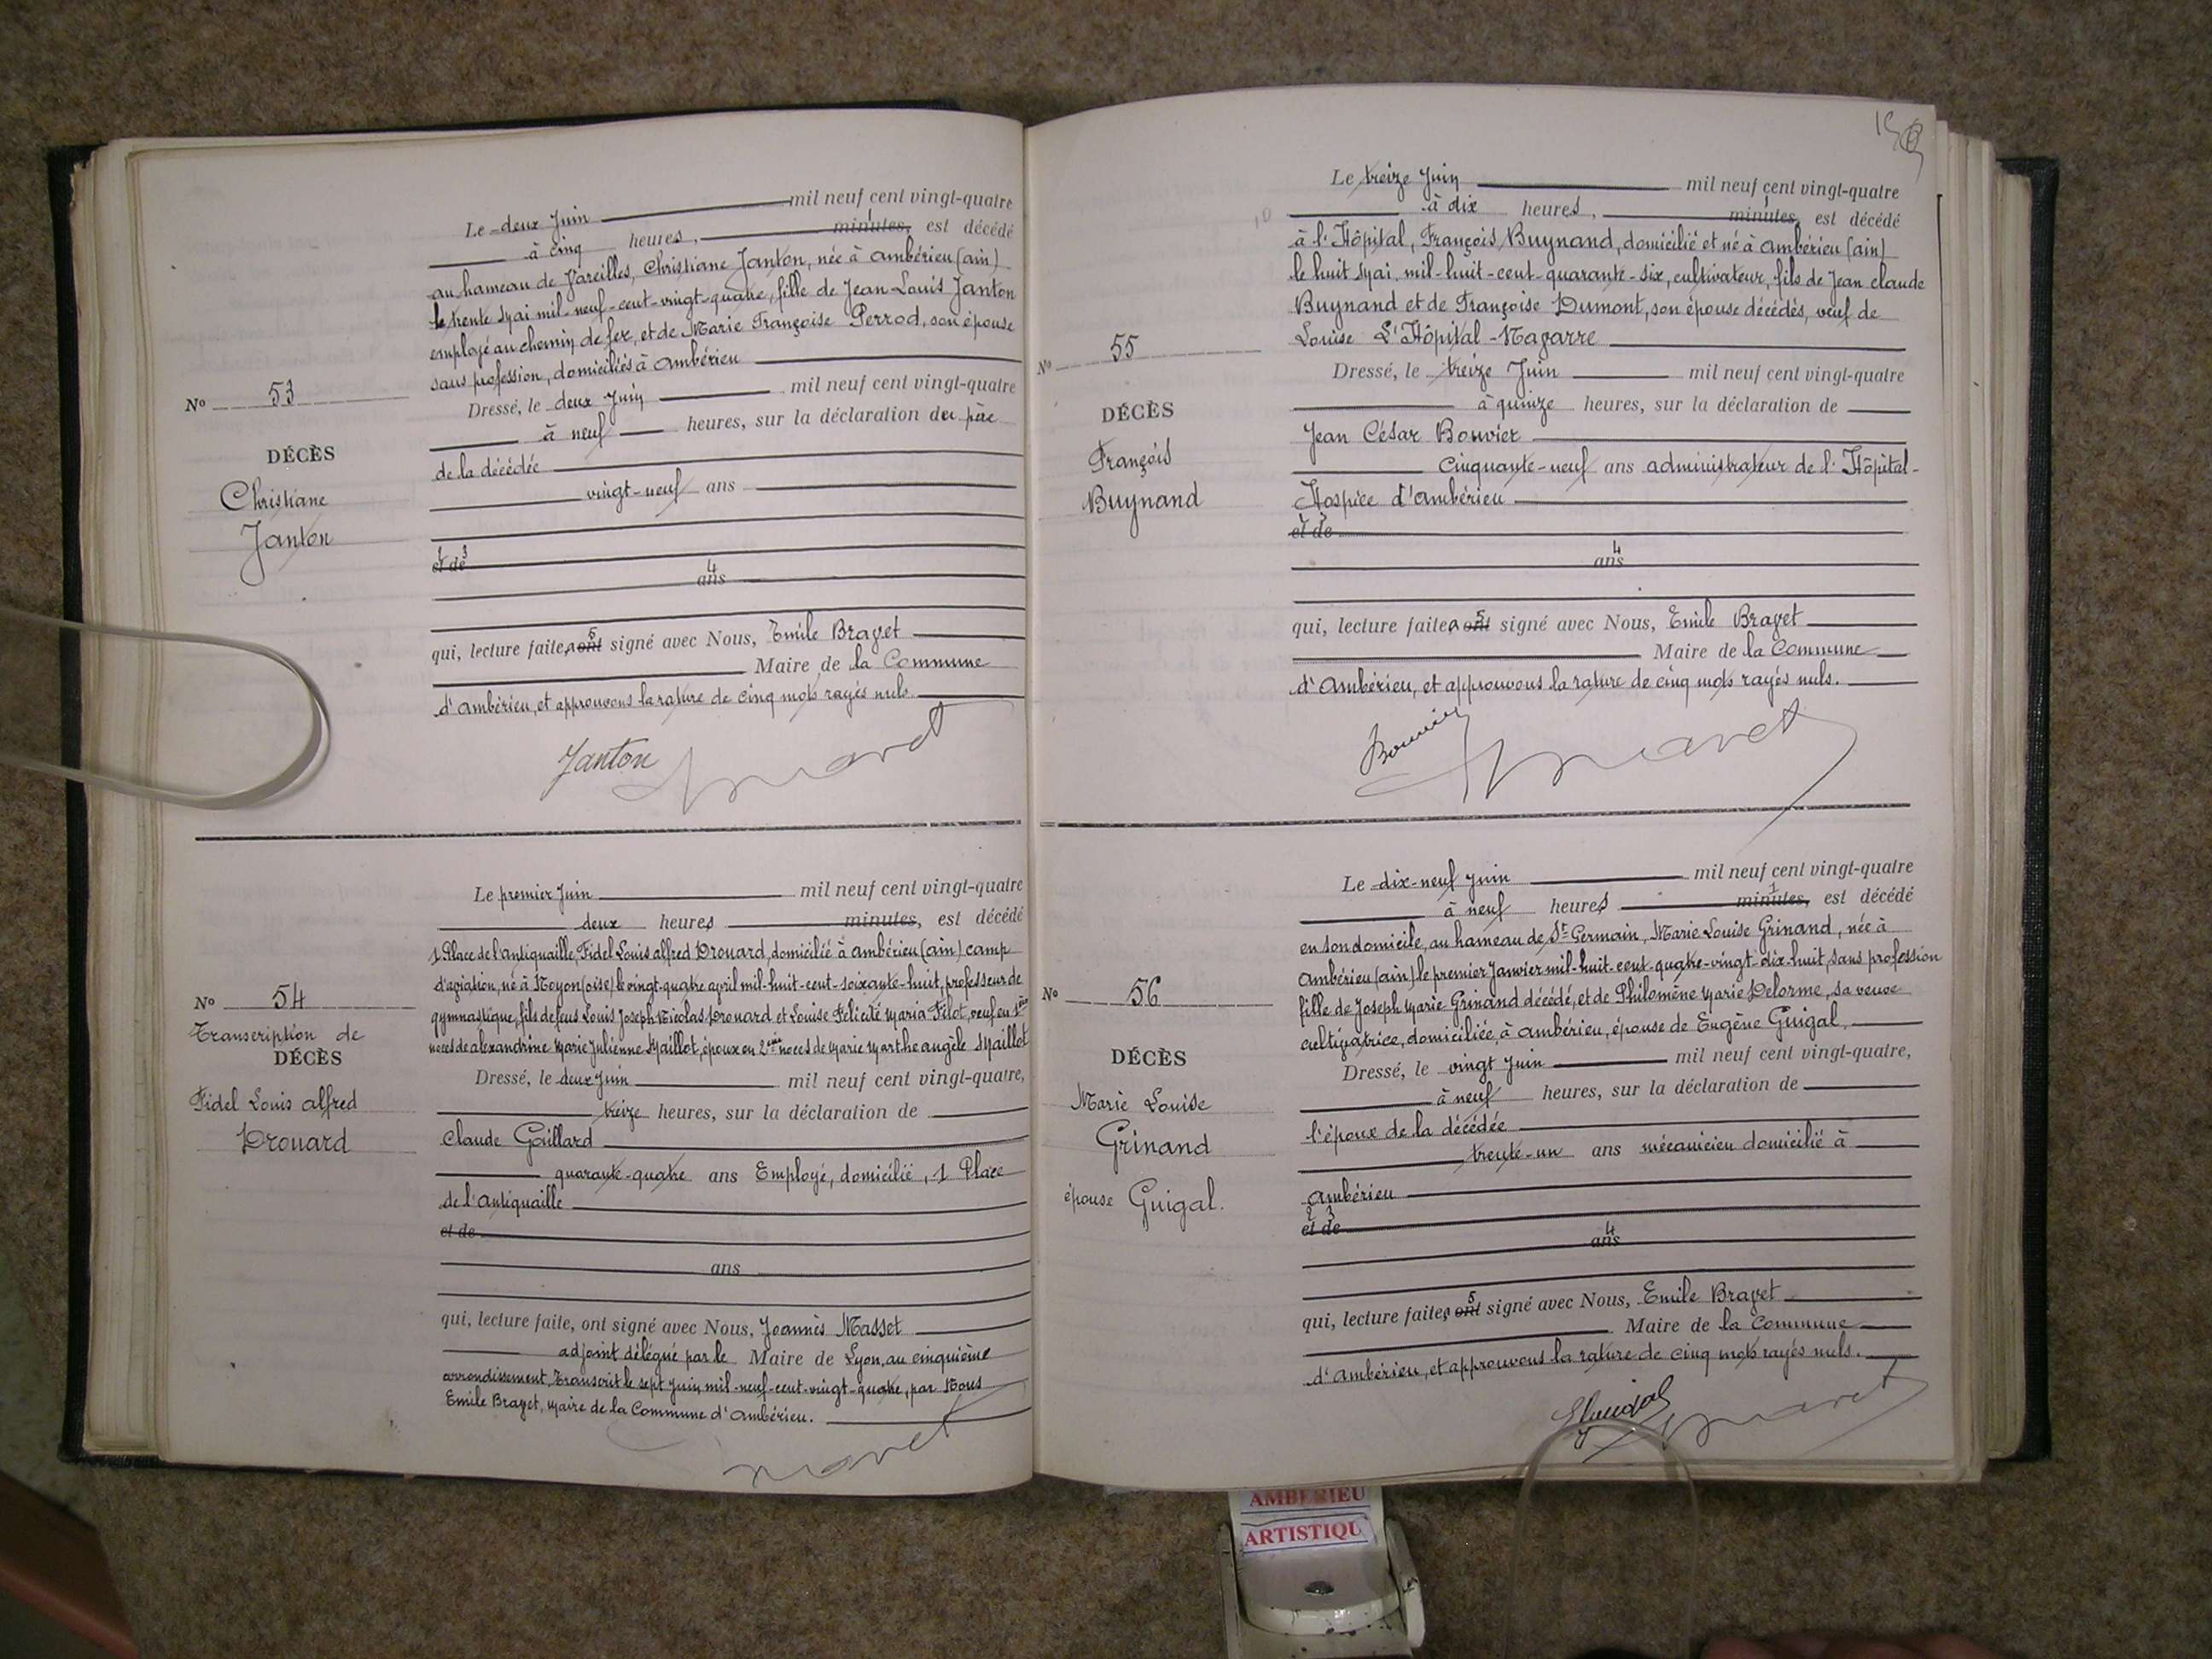 Le deux Juin mil neuf cent vingt-quatre
à cinq heures, minutes, est décédé
au hameau de Vareilles, Christiane Janton, née à Ambérieu (ain)
le trente Mai mil-neuf-cent-vingt-quatre, fille de Jean Louis Janton
employé au chemin de fer, et de Marie Françoise Perrod, son épouse
sans profession, domiciliés à Ambérieu
Nº 53
DÉCÈS
Christiane
Janton
Dressé, le deux Juin mil neuf cent vingt-quatre
à neuf heures, sur la déclaration du père
de la décédée
vingt-neuf ans
et de
ans
qui, lecture faite, a ont signé avec Nous, Emile Bravet
Maire de la Commune
d'Ambérieu, et approuvons la rature de cinq mots rayés nuls.
Janton
Le premier Juin mil neuf cent vingt-quatre
deux heures minutes, est décédé
1 Place de l'antiquaille, Fidel Louis alfred Drouard, domicilié à ambérieu (ain) camp
d'aviation, né à Noyon (oise) le vingt-quatre avril mil-huit-cent-soixante-huit, professeur de
gymnastique, fils de feus Louis Joseph Nicolas Drouard et Louise Félicité Maria Filot, veuf en 1ères
noces de alexandrine Marie Julienne Maillot, époux en 2èmes noces de Marie Marthe angèle Maillot
Nº 54
Transcription de
DÉCÈS
Fidel Louis alfred
Drouard
Dressé, le deux Juin mil neuf cent vingt-quatre,
treize heures, sur la déclaration de
Claude Gaillard
quarante-quatre ans Employé, domicilié, 1 Place
de l'Antiquaille
et de
ans
qui, lecture faite, ont signé avec Nous, Joannès Masset
adjoint délégué par le Maire de Lyon, au cinquième
arrondissement. Transcrit le sept Juin mil-neuf-cent-vingt-quatre, par Nous
Emile Bravet, Maire de la Commune d'Ambérieu.
Le treize Juin mil neuf cent vingt-quatre
à dix heures, minutes, est décédé
à l'Hôpital, François Buynand, domicilié et né à Ambérieu (ain)
le huit Mai mil-huit-cent-quarante-six, cultivateur, fils de Jean claude
Buynand et de Françoise Dumont, son épouse décédés, veuf de
Louise L'Hôpital-Navarre
Nº 55
DÉCÈS
François
Buynand
Dressé, le treize Juin mil neuf cent vingt-quatre
à quinze heures, sur la déclaration de
Jean César Bouvier
cinquante-neuf ans administrateur de l'Hôpital-
Hospice d'Ambérieu
et de
ans
qui, lecture faite, a ont signé avec Nous, Emile Bravet
Maire de la Commune
d'Ambérieu, et approuvons la rature de cinq mots rayés nuls.
Bouvier
Le dix-neuf Juin mil neuf cent vingt-quatre
à neuf heures minutes, est décédé
en son domicile, au hameau de St Germain, Marie Louise Grinand, née à
Ambérieu (ain) le premier Janvier mil-huit-cent-quatre-vingt-dix-huit, sans profession
fille de Joseph Marie Grinand décédé, et de Philomène Marie Delorme, sa veuve
cultivatrice, domiciliée à Ambérieu, épouse de Eugène Guigal,
Nº 56
DÉCÈS
Marie Louise
Grinand
épouse Guigal.
Dressé, le vingt Juin mil neuf cent vingt-quatre,
à neuf heures, sur la déclaration de
l'époux de la décédée
trente-un ans mécanicien domicilié à
Ambérieu
et de
ans
qui, lecture faite, a ont signé avec Nous, Emile Bravet
Maire de la Commune
d'Ambérieu, et approuvons la rature de cinq mots rayés nuls.
AMBERIEU
ARTISTIQU